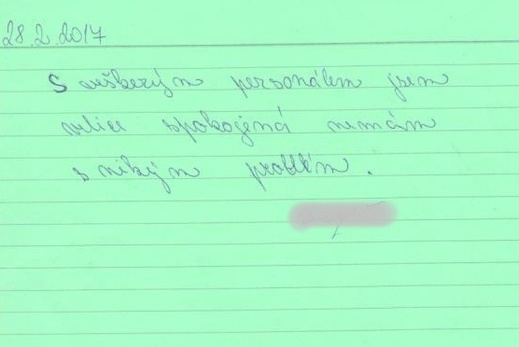 28.2.2017
S veškerým personálem jsem
velice spokojená nemám
s nikým problém.